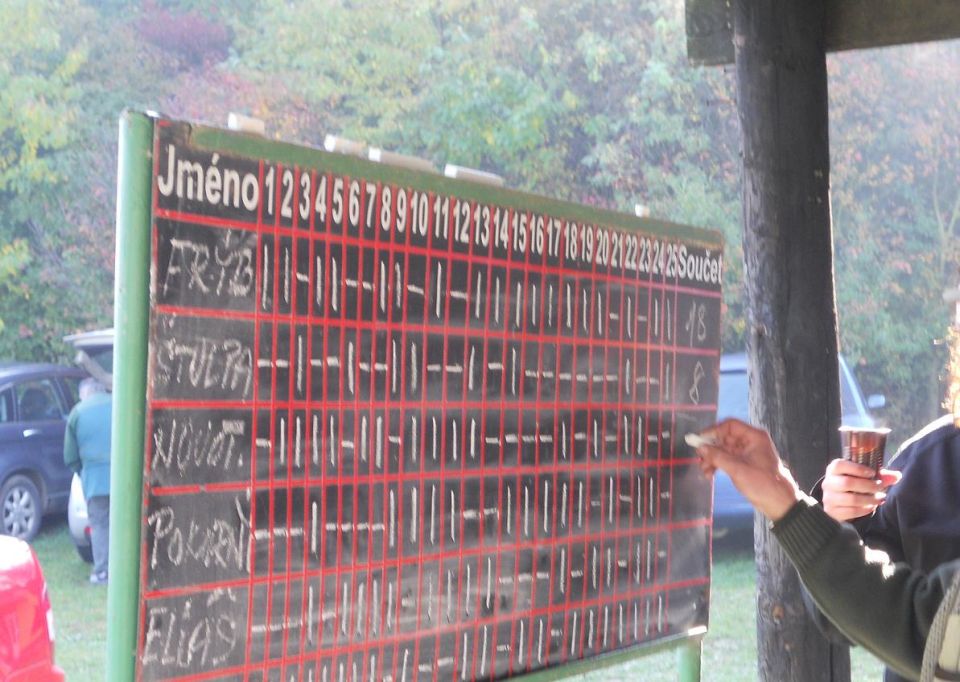 Jméno 1 2 3 4 5 6 7 8 9 10 11 12 13 14 15 16 17 18 19 20 21 22 23 24 25 Součet
FRÝB 18
ŠTULPA 8
NOVOT.
POKORNÝ
ELIÁŠ